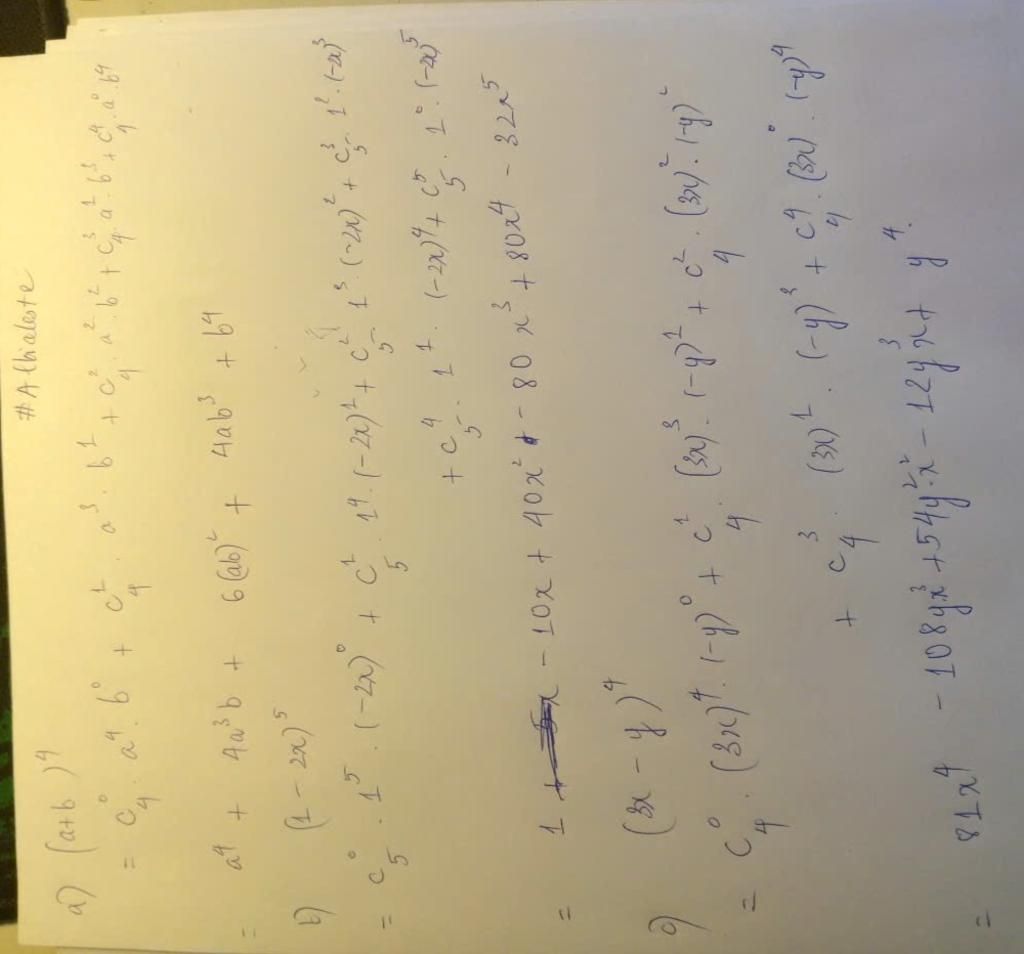 #Athialeste
a) (a+b)⁴
= C₄⁰ . a⁴ . b⁰ + C₄¹ . a³ . b¹ + C₄² . a² . b² + C₄³ . a¹ . b³ + C₄⁴ . a⁰ . b⁴
= a⁴ + 4a³b + 6(ab)² + 4ab³ + b⁴
b) (1 - 2x)⁵
= C₅⁰ . 1⁵ . (-2x)⁰ + C₅¹ . 1⁴ . (-2x)¹ + C₅² 1³ . (-2x)² + C₅³ . 1² . (-2x)³
+ C₅⁴ . 1¹ . (-2x)⁴ + C₅⁵ . 1⁰ . (-2x)⁵
= 1 - 10x + 40x² - 80x³ + 80x⁴ - 32x⁵
c) (3x - y)⁴
= C₄⁰ . (3x)⁴ . (-y)⁰ + C₄¹ . (3x)³ . (-y)¹ + C₄² . (3x)² . (-y)²
+ C₄³ . (3x)¹ . (-y)³ + C₄⁴ . (3x)⁰ . (-y)⁴
= 81x⁴ - 108yx³ + 54y²x² - 12y³x + y⁴.